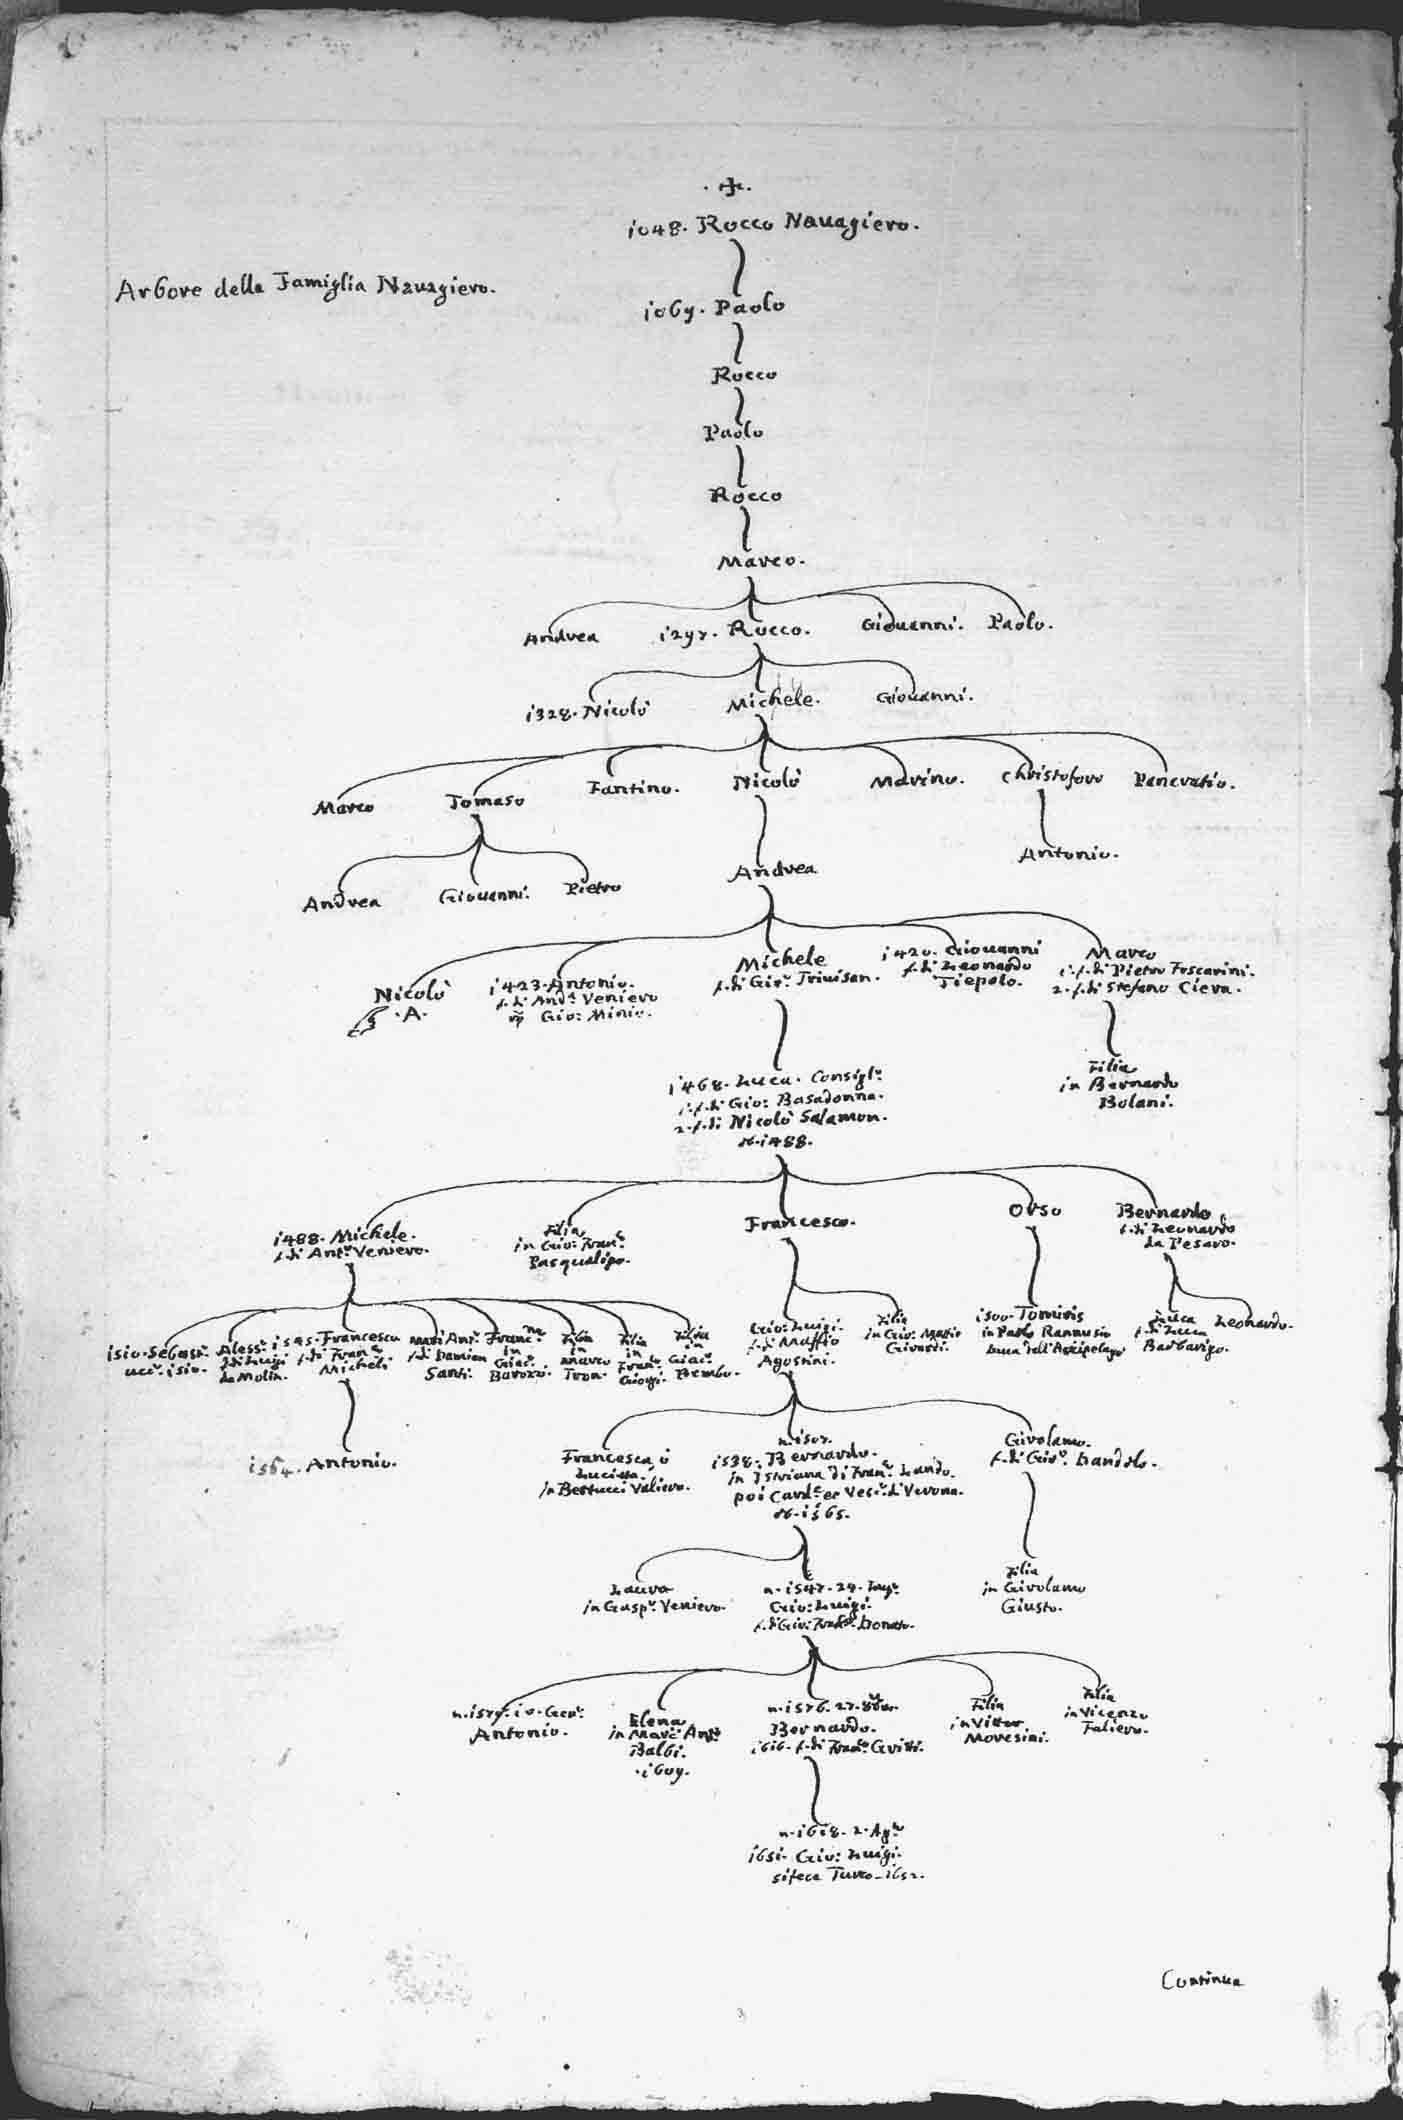 1048. Rocco Navagiero.
Arbore della Famiglia Navagiero.
Paolo
Rocco
Paolo
Rocco
Marco.
Andrea
Rocco.
Giouanni.
Paolo.
1328. Nicolò
Michele.
Giouanni.
Marco
Tomaso
Fantino.
Nicolò
Marino.
Christoforo
Pancratio.
Andrea
Giouanni.
Pietro
Andrea
Antonio.
Nicolò
.A.
1423. Antonio.
f. di And.ª Veniero
Gio: Minio.
Michele
f. di Gir.º Triuisan.
1420. Giouanni
f. di Leonardo
Tiepolo.
Marco
1. f. di Pietro Foscarini.
2. f. di Stefano Ciera.
1468. Luca. Consigl.r
1. f. di Gio: Basadonna.
2. f. di Nicolò Salamon.
ob. 1488.
Filia
in Bernardo
Bolani.
1488. Michele.
f. di Ant.º Veniero.
Filia
in Gio: Fran.º
Pasqualigo.
Francesco.
Orso
Bernardo
f. di Leonardo
da Pesaro.
1510. Sebast.º
ucc.º 1510.
Aless.º
f. di Luigi
da Molin.
1545. Francesco
f. di Fran.º
Micheli
Marc'Ant.º
f. di Damian
Santi.
Franc.na
in
Giac.º
Barozo.
Filia
in
Marco
Tron.
Filia
in
Fran.º
Giorgi.
Filia
in
Giac.º
Bembo.
Gio: Luigi.
f. di Maffio
Agostini.
Filia
in Gio: Mattio
1500. Tomiris
in Paolo Rannusio
Luca
f. di Luca
Barbarigo.
Leonardo.
1564. Antonio.
Francesca, ò
in Bertucci Valiero.
n. 1507.
1538. Bernardo.
in Istriana di Fran.º Lando.
poi Card.e et Vesc.º di Verona.
ob. 1565.
Girolamo.
f. di Gir.º Dandolo.
Laura
in Gasp.º Veniero.
Gio: Luigi.
f. di Gio: Fran.º Donato.
Filia
in Girolamo
Giusto.
Antonio.
Elena
in Marc'Ant.º
Balbi.
Bernardo.
1616. f. di Fran.º Gritti.
Filia
in Vittor
Moresini.
Filia
in Vicenzo
Faliero.
n. 1618. 2. Ag.to
1651. Gio: Luigi.
si fece Turco. 1652.
Continua